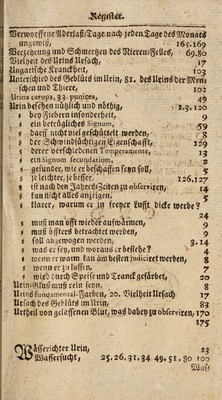 Register.
Verworffene Aderlaß-Tage nach jeden Tage des Monats
ungewiß, 165.169
Verzehrung und Schmertzen des Nieren-Felles, 69.80
Vielheit des Urins Ursach, 17
Ungarische Kranckheit, 103
Unterschied des Geblüts im Urin, 81. des Urins der Menschen
und Thiere, 102
Urina corapa, 33. puniceo, 49
Urin besehen nützlich und nöthig, 1.3.120
bey Fiebern insonderheit, 9
ein betrügliches Signum, 59
darff nicht viel geschüttelt werden, 8
der Schwindsüchtigen Eigenschafft, 129
derer verschiedenen Temperamente, 13
ein Signum secundarium, 2
gesunder, wie er beschaffen seyn soll, 5
je leichter, je besser, 126.127
ist nach den Jahres-Zeiten zu observiren, 14
kan nicht alles anzeigen, 5
klarer, warum er in freyer Lufft dicke werde?
24
muß man offt wieder aufwärmen, 9
muß öffters betrachtet werden, 9
soll abgezogen werden, 3.14
was er sey, und woraus er bestehe? 4
wenn er warm kan am besten judiciret werden, 8
wenn er zu lassen, 7
wird durch Speise und Tranck gefärbet, 20
Urin-Glaß muß rein seyn, 8
Urins fundamental-Farben, 20. Vielheit Ursach 17
Ursach des Geblüts im Urin, 83
Urtheil von gelassenen Blut, was dabey zu observiren, 170
175
Wässerichter Urin, 23
Wassersucht, 25.26.31.34 49.51.80 100
Was-